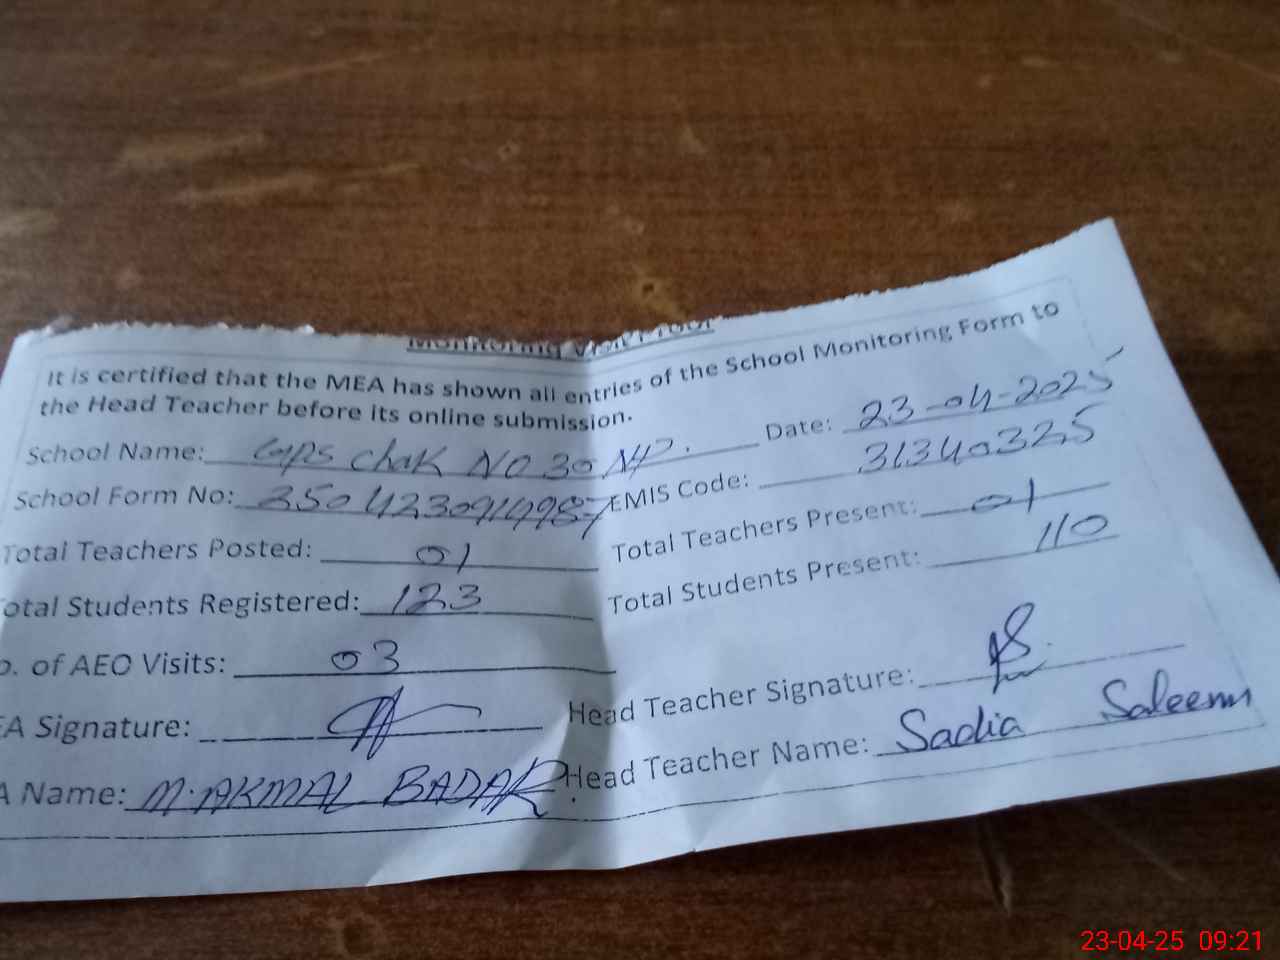 Monitoring Visit Proof
It is certified that the MEA has shown all entries of the School Monitoring Form to
the Head Teacher before its online submission.
School Name: GGPS Chak NO 30 NP. Date: 23-04-2025
School Form No: EMIS Code: 31340325
Total Teachers Posted: 01 Total Teachers Present: 01
otal Students Registered: 123 Total Students Present: 110
o. of AEO Visits: 03
EA Signature: Head Teacher Signature:
A Name: M. AKMAL BADAR Head Teacher Name: Sadia Saleem
23-04-25 09:21